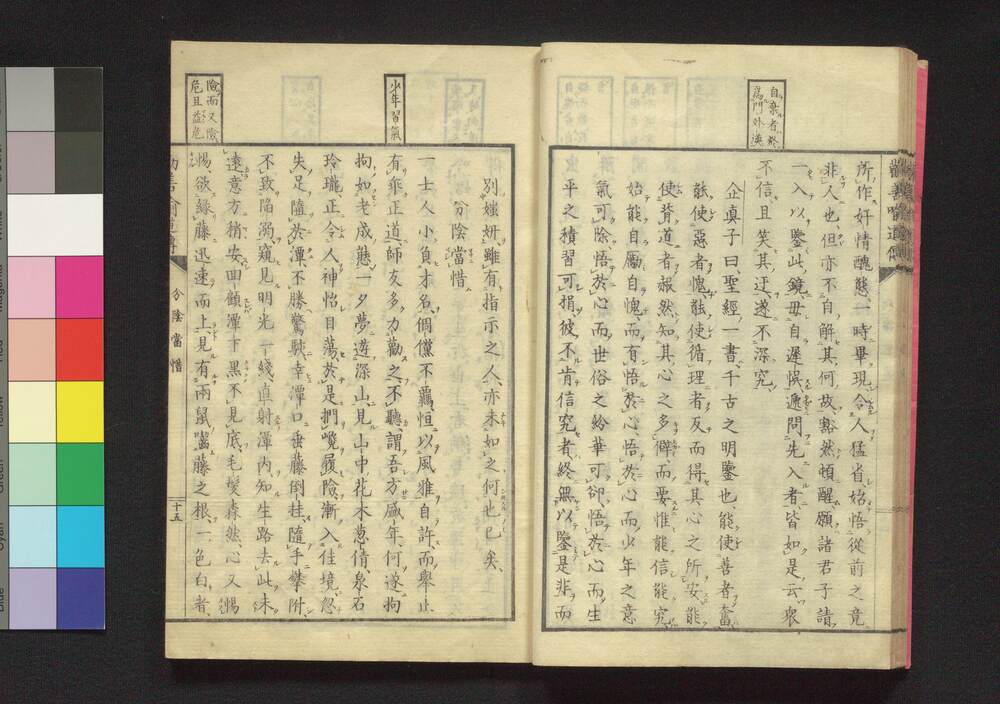 自棄者終
為門外漢
所作奸情醜態一時畢現令人猛省始悟從前之竟
非人也但亦不自解其何故豁然頓醒願諸君子請
一入以鑒此鏡毋自遲悞遞問先入者皆如是云衆
不信且笑其迂遂不深究
企真子曰聖經一書千古之明鑒也能使善者奮
能使惡者愧能使循理者反而得其心之所安能
使背道者赧然知其心之多僻而要惟能信能究
始能自勵自愧而有悟於心悟於心而少年之意
氣可除悟於心而世俗之紛華可卻悟於心而生
平之積習可捐彼不肯信究者終無以鑒是非而
少年習氣
險而又險
危且益危
別媸妍雖有指示之人亦未如之何也已矣
分陰當惜
一士人小負才名倜儻不羈恒以風雅自許而舉止
有乖正道師友多方勸之不聽謂吾方盛年何遂拘
拘如老成態一夕夢遊深山見山中花木葱倩泉石
玲瓏正令人神怡目蕩於是捫巉履險漸入佳境忽
失足隨於潭不勝驚駭幸潭口垂藤倒挂隨手攀附
不致陷溺窺見明光一綫直射潭内知生路去此未
遠意方稍安回顧潭下黑不見底毛髮森然心又惕
惕欲緣藤迅速而上見有兩鼠嚙藤之根一色白者
分陰當惜
十五